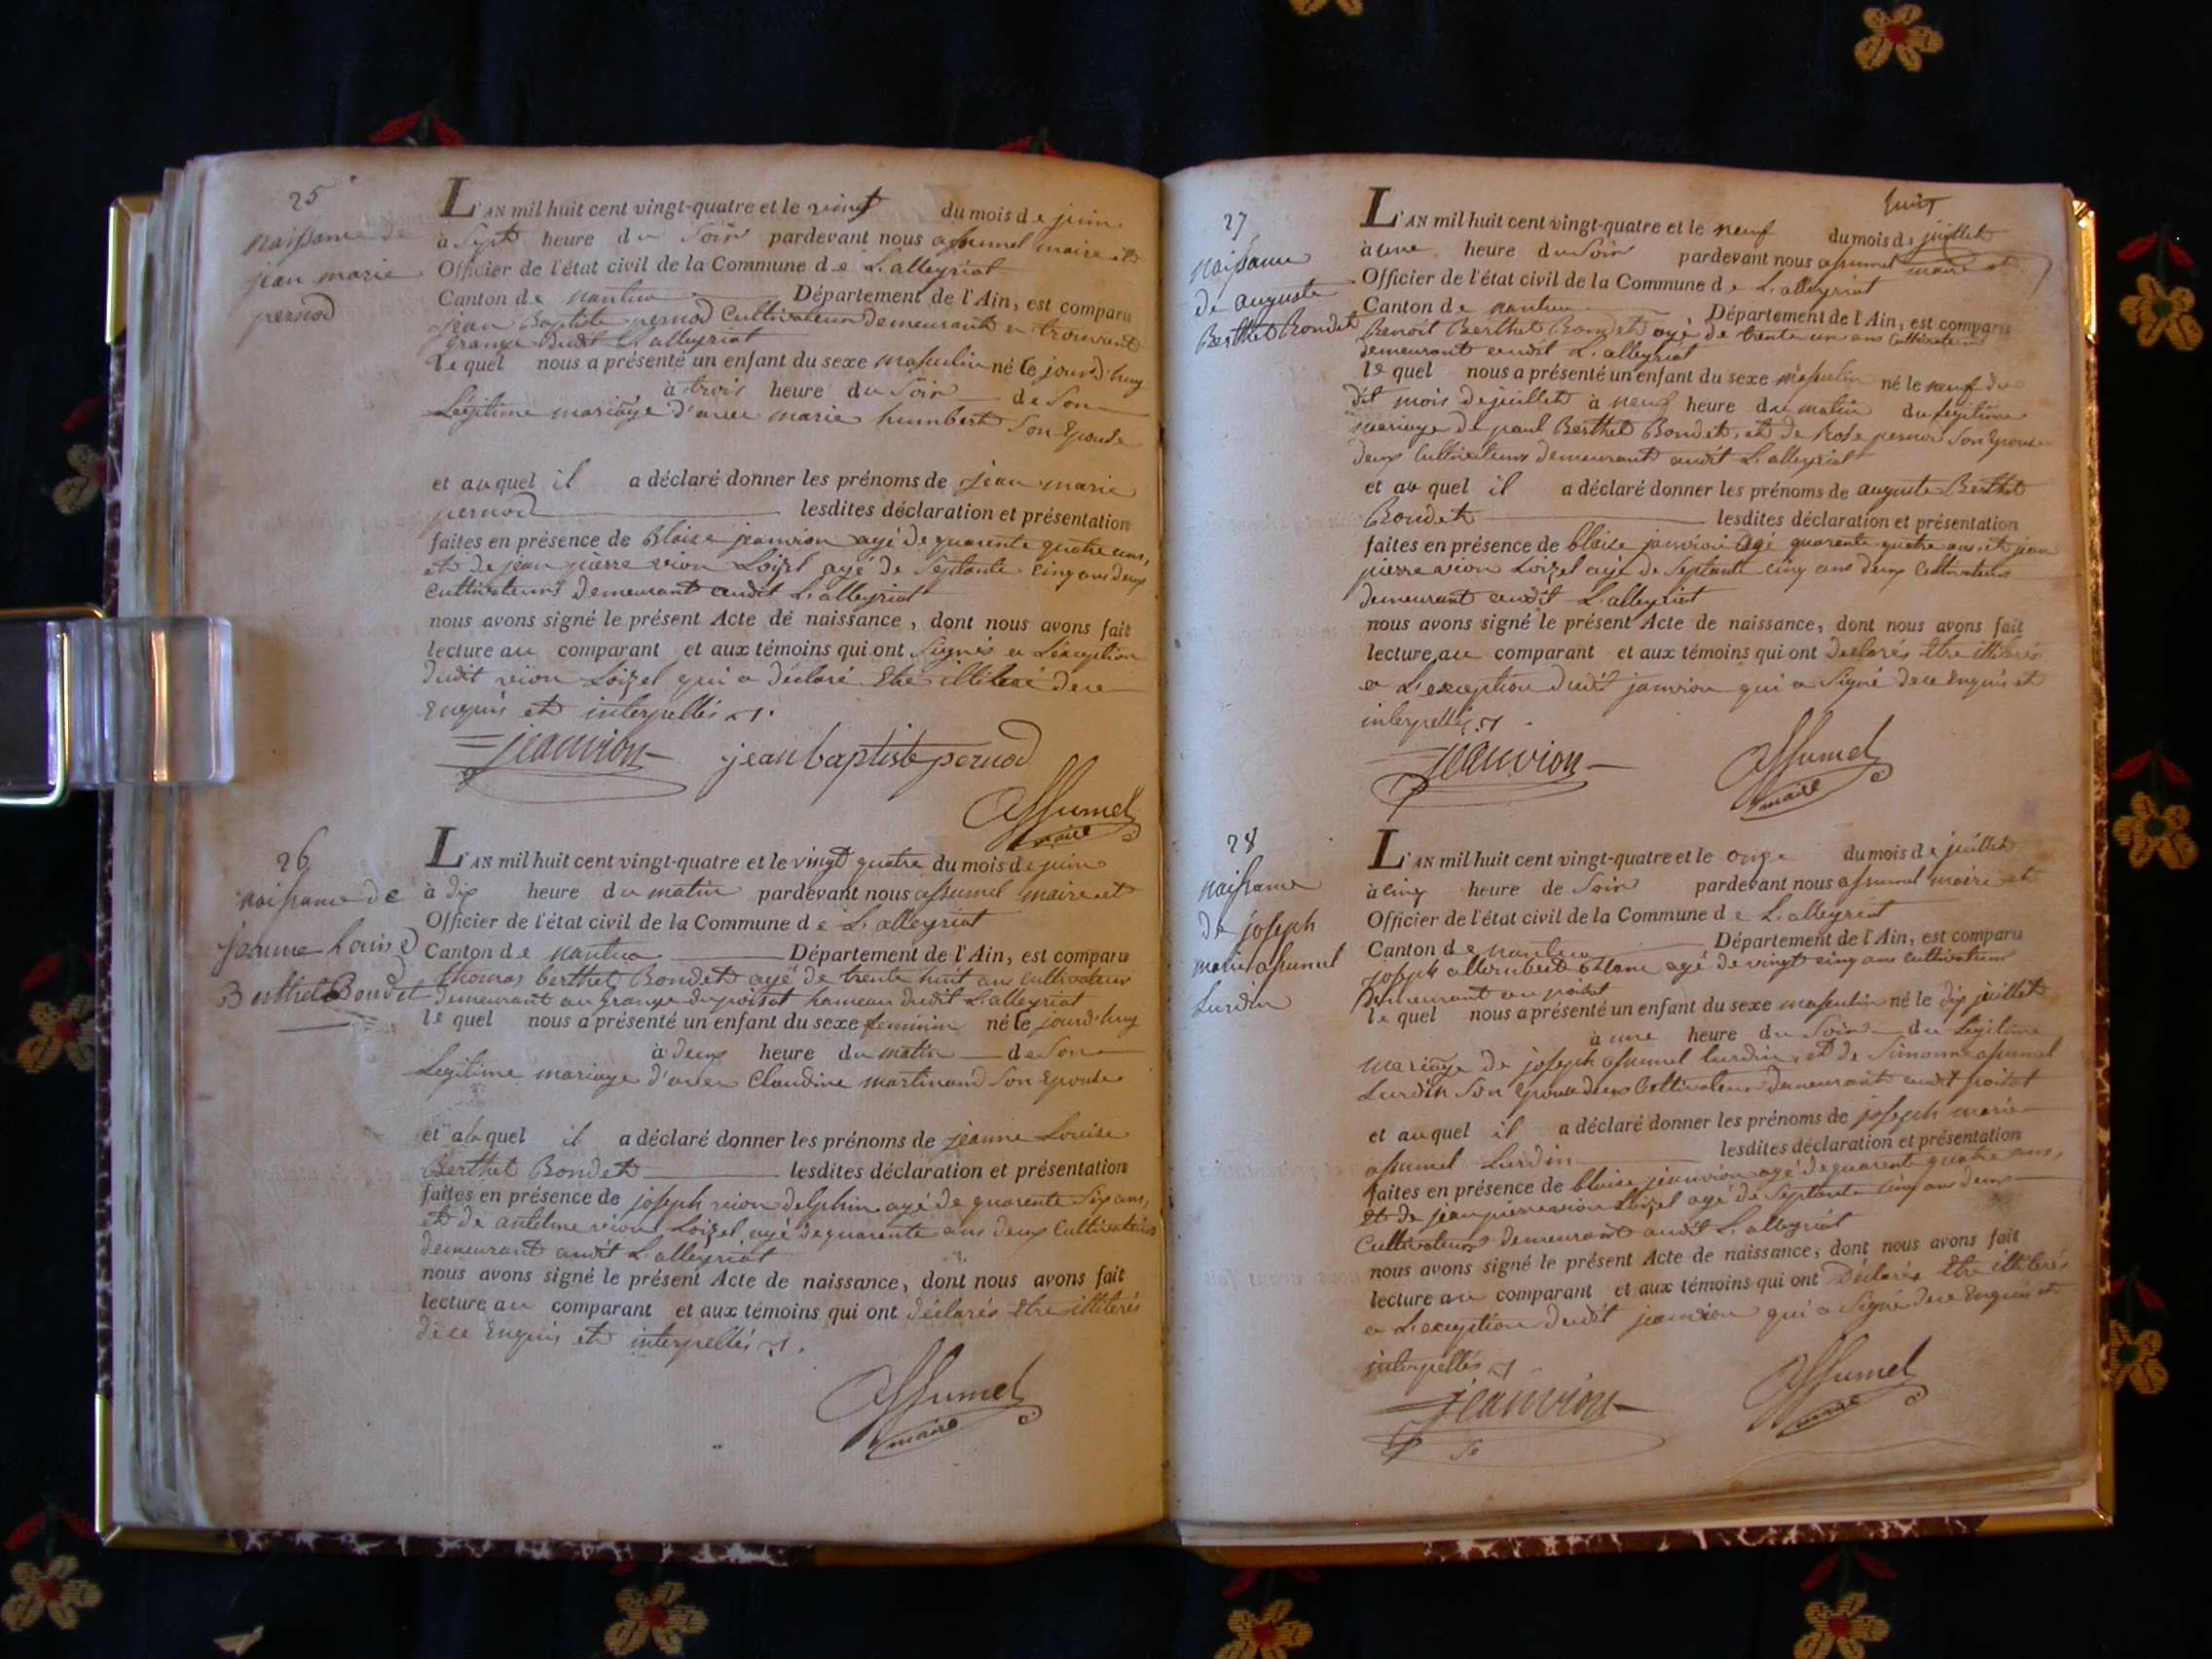 25
naissance de
jean marie
pernod
L'AN mil huit cent vingt-quatre et le vingt du mois de juin
à Sept heure du Soir pardevant nous assumel maire et
Officier de l'état civil de la Commune de L'alleyriat
Canton de nantua Département de l'Ain, est comparu
jean Baptiste pernod Cultivateur demeurant
grange dudit L'alleyriat
lequel nous a présenté un enfant du sexe masculin né le jourd'huy
à trois heure du Soir de Son
Légitime mariage d'avec marie humbert Son Epouse
et auquel il a déclaré donner les prénoms de jean marie
pernod lesdites déclaration et présentation
faites en présence de Blaise jeanvion agé de quarente quatre ans,
et de jean pierre vion Loizel agé de Septante cinq ans deux
Cultivateurs demeurant audit L'alleyriat
nous avons signé le présent Acte de naissance, dont nous avons fait
lecture au comparant et aux témoins qui ont Signés a Léxception
dudit vion Loizel qui a déclaré Etre illiteré de ce
Enquis et interpellés
jeanvion jean baptiste pernod
assumel
maire
26
naissance de
jeanne Louise
Berthet Bondet
L'AN mil huit cent vingt-quatre et le vingt quatre du mois de juin
à dix heure du matin pardevant nous assumel maire et
Officier de l'état civil de la Commune de L'alleyriat
Canton de nantua Département de l'Ain, est comparu
thomas berthet Bondet agé de trente huit ans cultivateur
demeurant au grange du poisat hameau dudit L'alleyriat
lequel nous a présenté un enfant du sexe feminin né le jourd'huy
à deux heure du matin de Son
Legitime mariage d'avec Claudine martinand Son Epouse
et auquel il a déclaré donner les prénoms de jeanne Louise
Berthet Bondet lesdites déclaration et présentation
faites en présence de joseph vion delphin agé de quarente Six ans,
et de antelme vion Loizel agé de quarente ans deux Cultivateurs
demeurant audit L'alleyriat
nous avons signé le présent Acte de naissance, dont nous avons fait
lecture au comparant et aux témoins qui ont déclarés Etre illiterés
de ce Enquis et interpellés
assumel
maire
huit
27
naissance
de auguste
Berthet Bondet
L'AN mil huit cent vingt-quatre et le neuf du mois de juillet
à une heure du Soir pardevant nous assumel maire et
Officier de l'état civil de la Commune de L'alleyriat
Canton de nantua, Département de l'Ain, est comparu
Benoit Berthet Bondet agé de trente un ans Cultivateur
demeurant audit L'alleyriat
lequel nous a présenté un enfant du sexe masculin né le neuf du
dit mois de juillet à neuf heure du matin du legitime
mariage de paul Berthet Bondet, et de Rose pernod Son Epouse
deux Cultivateurs demeurant audit L'alleyriat
et au quel il a déclaré donner les prénoms de auguste Berthet
Bondet lesdites déclaration et présentation
faites en présence de blaise janvion agé quarente quatre ans, et jean
pierre vion Loizel agé de Septante cinq ans deux Cultivateurs
demeurant audit L'alleyriat
nous avons signé le présent Acte de naissance, dont nous avons fait
lecture au comparant et aux témoins qui ont declarés Etre illiterés
a L'exception dudit janvion qui a Signé de ce Enquis et
interpellés
jeanvion assumel
maire
28
naissance
de joseph
marie assumel
Lurdin
L'AN mil huit cent vingt-quatre et le onze du mois de juillet
à cinq heure de Soir pardevant nous assumel maire et
Officier de l'état civil de la Commune de L'alleyriat
Canton de nantua Département de l'Ain, est comparu
joseph agé de vingt cinq ans cultivateur
demeurant au poisat
lequel nous a présenté un enfant du sexe masculin né le dix juillet
à une heure du Soir du Legitime
mariage de joseph assumel lurdin, et de Simonne assumel
Lurdin Son Epouse deux Cultivateurs demeurant audit poisat
et auquel il a déclaré donner les prénoms de joseph marie
assumel Lurdin lesdites déclaration et présentation
faites en présence de blaise jeanvion agé de quarente quatre ans,
et de jean pierre vion Loizel agé de Septante cinq ans deux
Cultivateurs demeurant audit L'alleyriat
nous avons signé le présent Acte de naissance, dont nous avons fait
lecture au comparant et aux témoins qui ont Déclarés Etre illiterés
a L'exception dudit jeanvion qui a Signé de ce Enquis et
interpellés
jeanvion assumel
maire